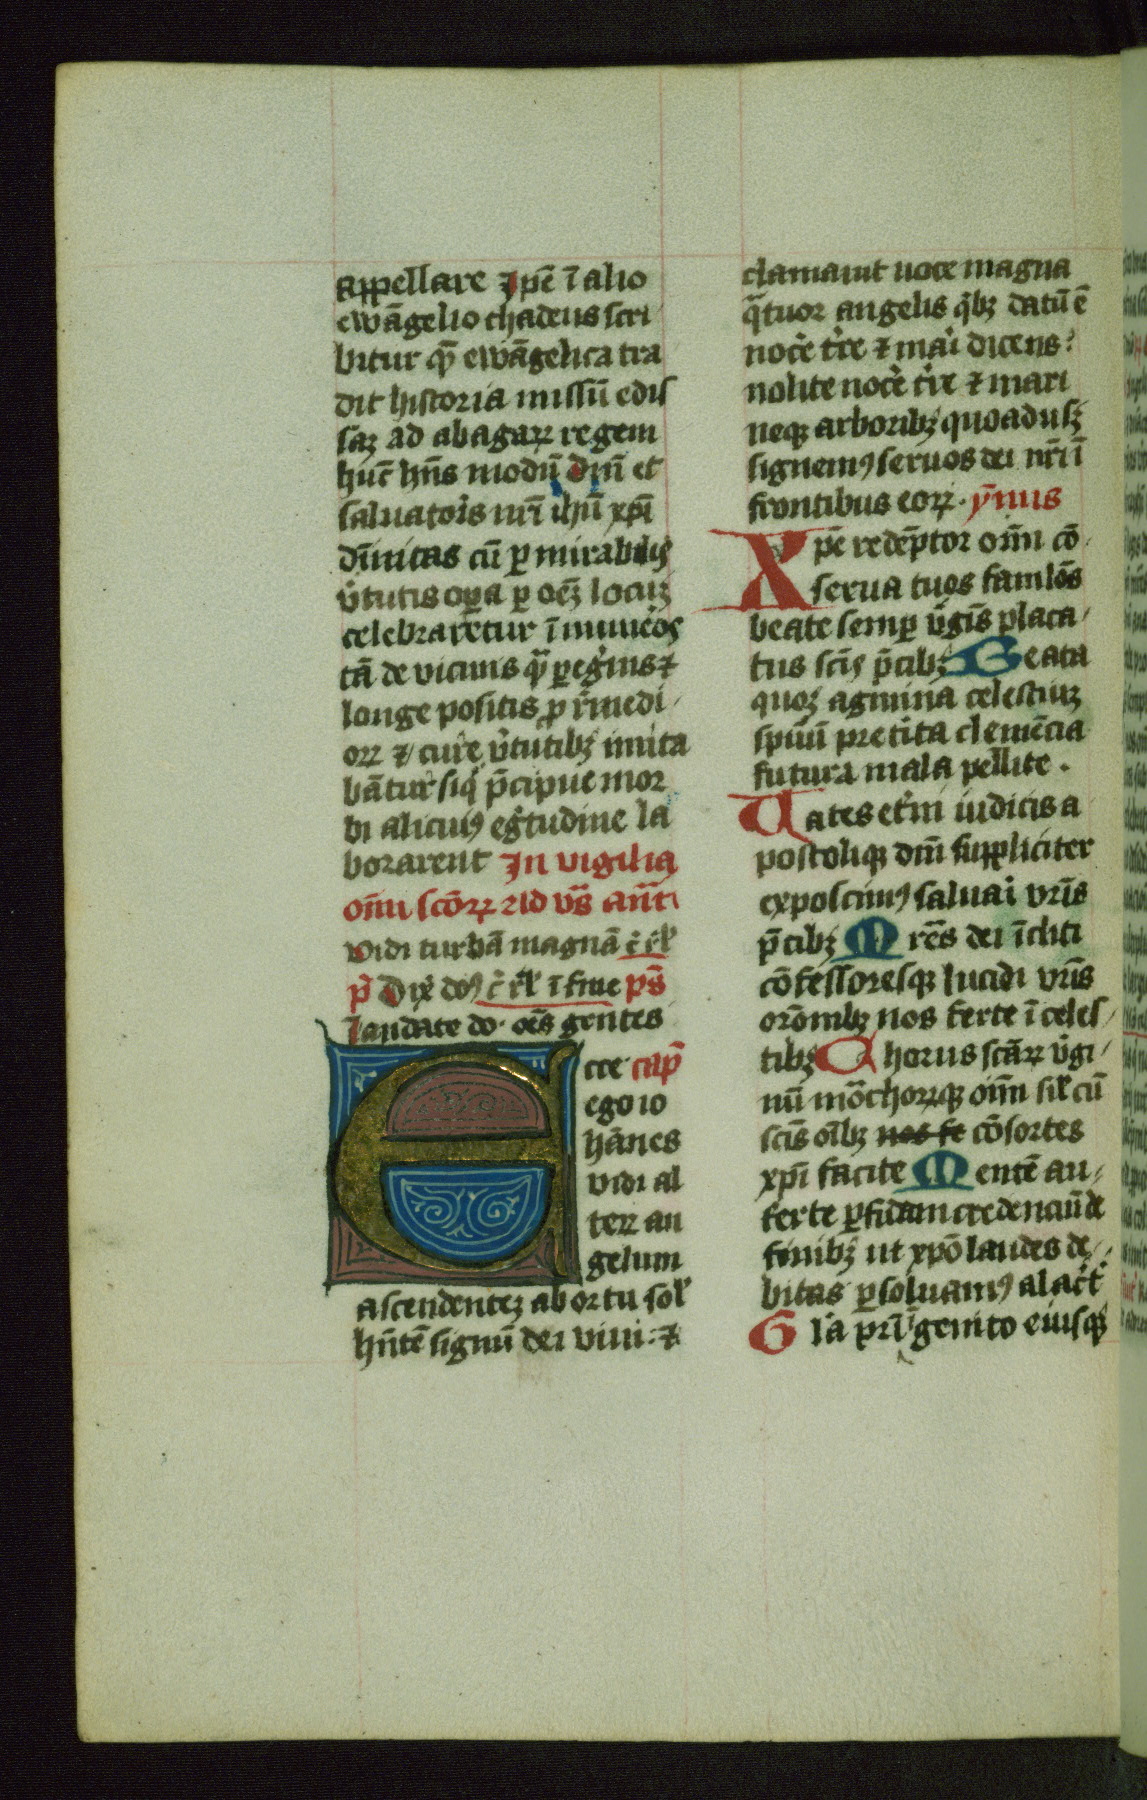 appellare Ipē ī alio
ewāgelio thadeus scri
bitur q̄ ewāgelica tra
dit historia missū edis
saꝫ ad abagaꝝ regem
huic hn̄s modū dn̄i et
saluatoris nr̄i ihū xp̄i
diuitas cū ꝑ mirabilis
v̓tutis oꝑa ꝑ oēꝫ locuꝫ
celebraretur ī
tā de vicinis qͣ ꝑeg̓inis ⁊
longe positis ꝓ r̓medi
oꝝ ⁊ cure v̓tutibꝫ imita
bātur siq̓ p̄cipue mor
bi alicuiꝰ eg̓tudine la
borarent In vigilia
om̄i scōꝝ Ad vꝰs an̄t
vidi turbā magnā
p̓ Dix̓ dōꝰ ī fine pꝰs
laudate do· oēs gentes
cce cap̄
ego io
hānes
vidi al
teꝝ an
gelum
ascendenteꝫ ab ortu sol̓
hn̄tē signū dei viui · ⁊
clamauit uoce magna
qͣtuor angelis qͥbꝫ datū ē
noc̓e t̓re ⁊ ma̓i dicens
nolite noc̓e t̓re ⁊ mari
neqꝫ arboribꝫ quoadusꝫ
signemꝰ seruos dei nr̄i ī
frontibus eoꝝ · ȳmus
Xpē redēptor om̄i cō
serua tuos famlōs
beate semꝑ v̓gīs placa
tus scīs p̄cibꝫ Beata
quoꝫ agmina celestiuꝫ
spūū pretita clemēcia
futura mala pellite .
Uates et̓ni iudicis a
postoliqꝫ dn̄i suppliciter
exposcimꝰ saluai vr̄is
p̄cibꝫ Mr̄es dei īcliti
cōfessoresqꝫ lucidi vr̄is
orōnibꝫ nos ferte ī celes
tibꝫ Chorus scāꝝ v̓gi
nū mōchoꝝqꝫ om̄i sil̓ cū
scīs oībꝫ nos fe cōsortes
xp̄i facite Mentē au
ferte ꝑfidam credenciū de
finibꝫ ut xpō laudes de
bitas ꝑsoluamꝰ alac̓t̓
Gl̓a pr̄i īgenito eiusqꝫ